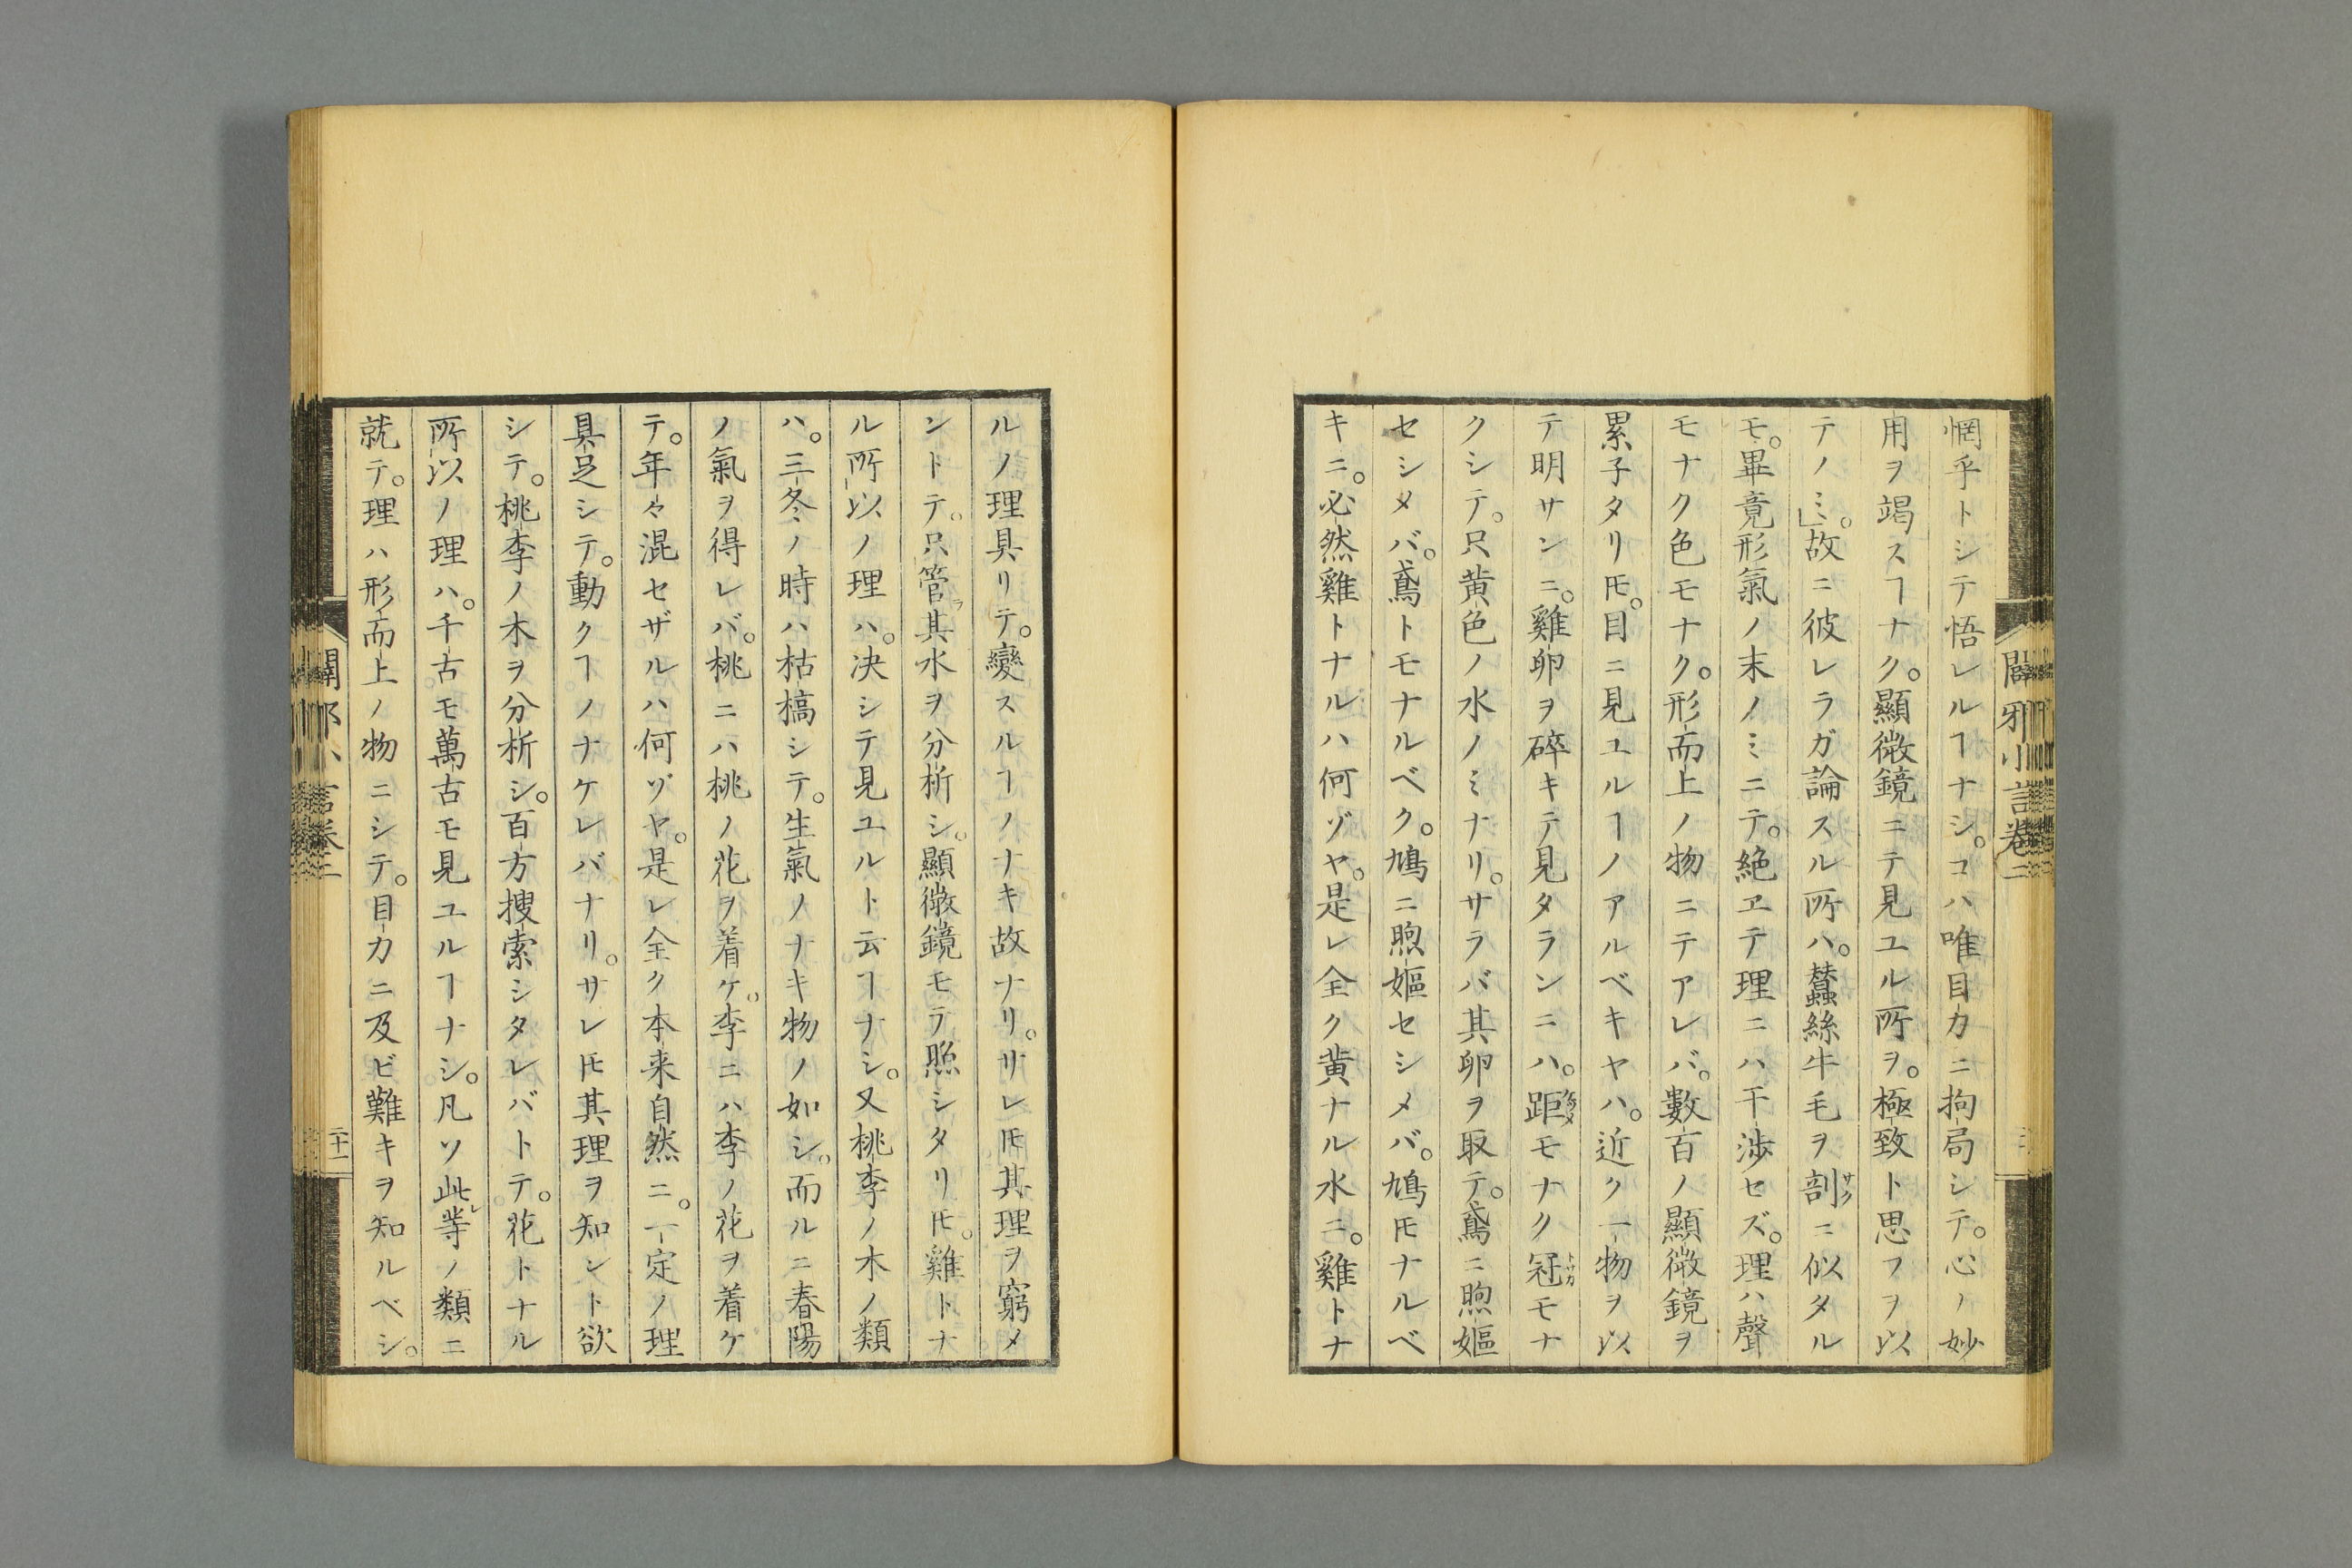 闢邪小言卷二
惘乎トシテ悟レルヿナシ。コハ唯目力ニ拘局シテ。心ノ妙
用ヲ竭スヿナク。顯微鏡ニテ見ユル所ヲ。極致ト思フヲ以
テノミ。」故ニ彼レラガ論スル所ハ。蠶絲牛毛ヲ剖サクニ似タル
モ。畢竟形氣ノ末ノミニテ。絶エテ理ニハ干渉セズ。理ハ聲
モナク色モナク。形而上ノ物ニテアレバ。數百ノ顯微鏡ヲ
累子タリ𪜈。目ニ見ユルヿノアルベキヤハ。近ク一物ヲ以
テ明サンニ。雞卵ヲ碎キテ見タランニハ。距ケヅメモナク冠トサカモナ
クシテ。只黄色ノ水ノミナリ。サラバ其卵ヲ取テ。鳶ニ煦嫗
セシメバ。鳶トモナルベク。鳩ニ煦嫗セシメバ。鳩𪜈ナルベ
キニ。必然雞トナルハ何ゾヤ。是レ全ク黄ナル水ニ。雞トナ
ルノ理具リテ。變スルヿノナキ故ナリ。サレ𪜈其理ヲ窮メ
ントテ。只管ヲ其水ヲ分析シ。顯微鏡モテ照シタリ𪜈。雞トナ
ル所以ノ理ハ。决シテ見ユルト云ヿナシ。又桃李ノ木ノ類
ハ。三冬ノ時ハ枯槁シテ。生氣ノナキ物ノ如シ。而ルニ春陽
ノ氣ヲ得レバ。桃ニハ桃ノ花ヲ着ケ。李ニハ李ノ花ヲ着ケ
テ。年々混セザルハ何ゾヤ。是レ全ク本来自然ニ。一定ノ理
具足シテ。動クヿノナケレバナリ。サレ𪜈其理ヲ知ント欲
シテ。桃李ノ木ヲ分析シ。百方搜索シタレバトテ。花トナル
所以ノ理ハ。千古モ萬古モ見ユルヿナシ。凡ソ此レ等ノ類ニ
就テ。理ハ形而上ノ物ニシテ。目力ニ及ビ難キヲ知ルベシ。
闢邪小言卷二
二十一